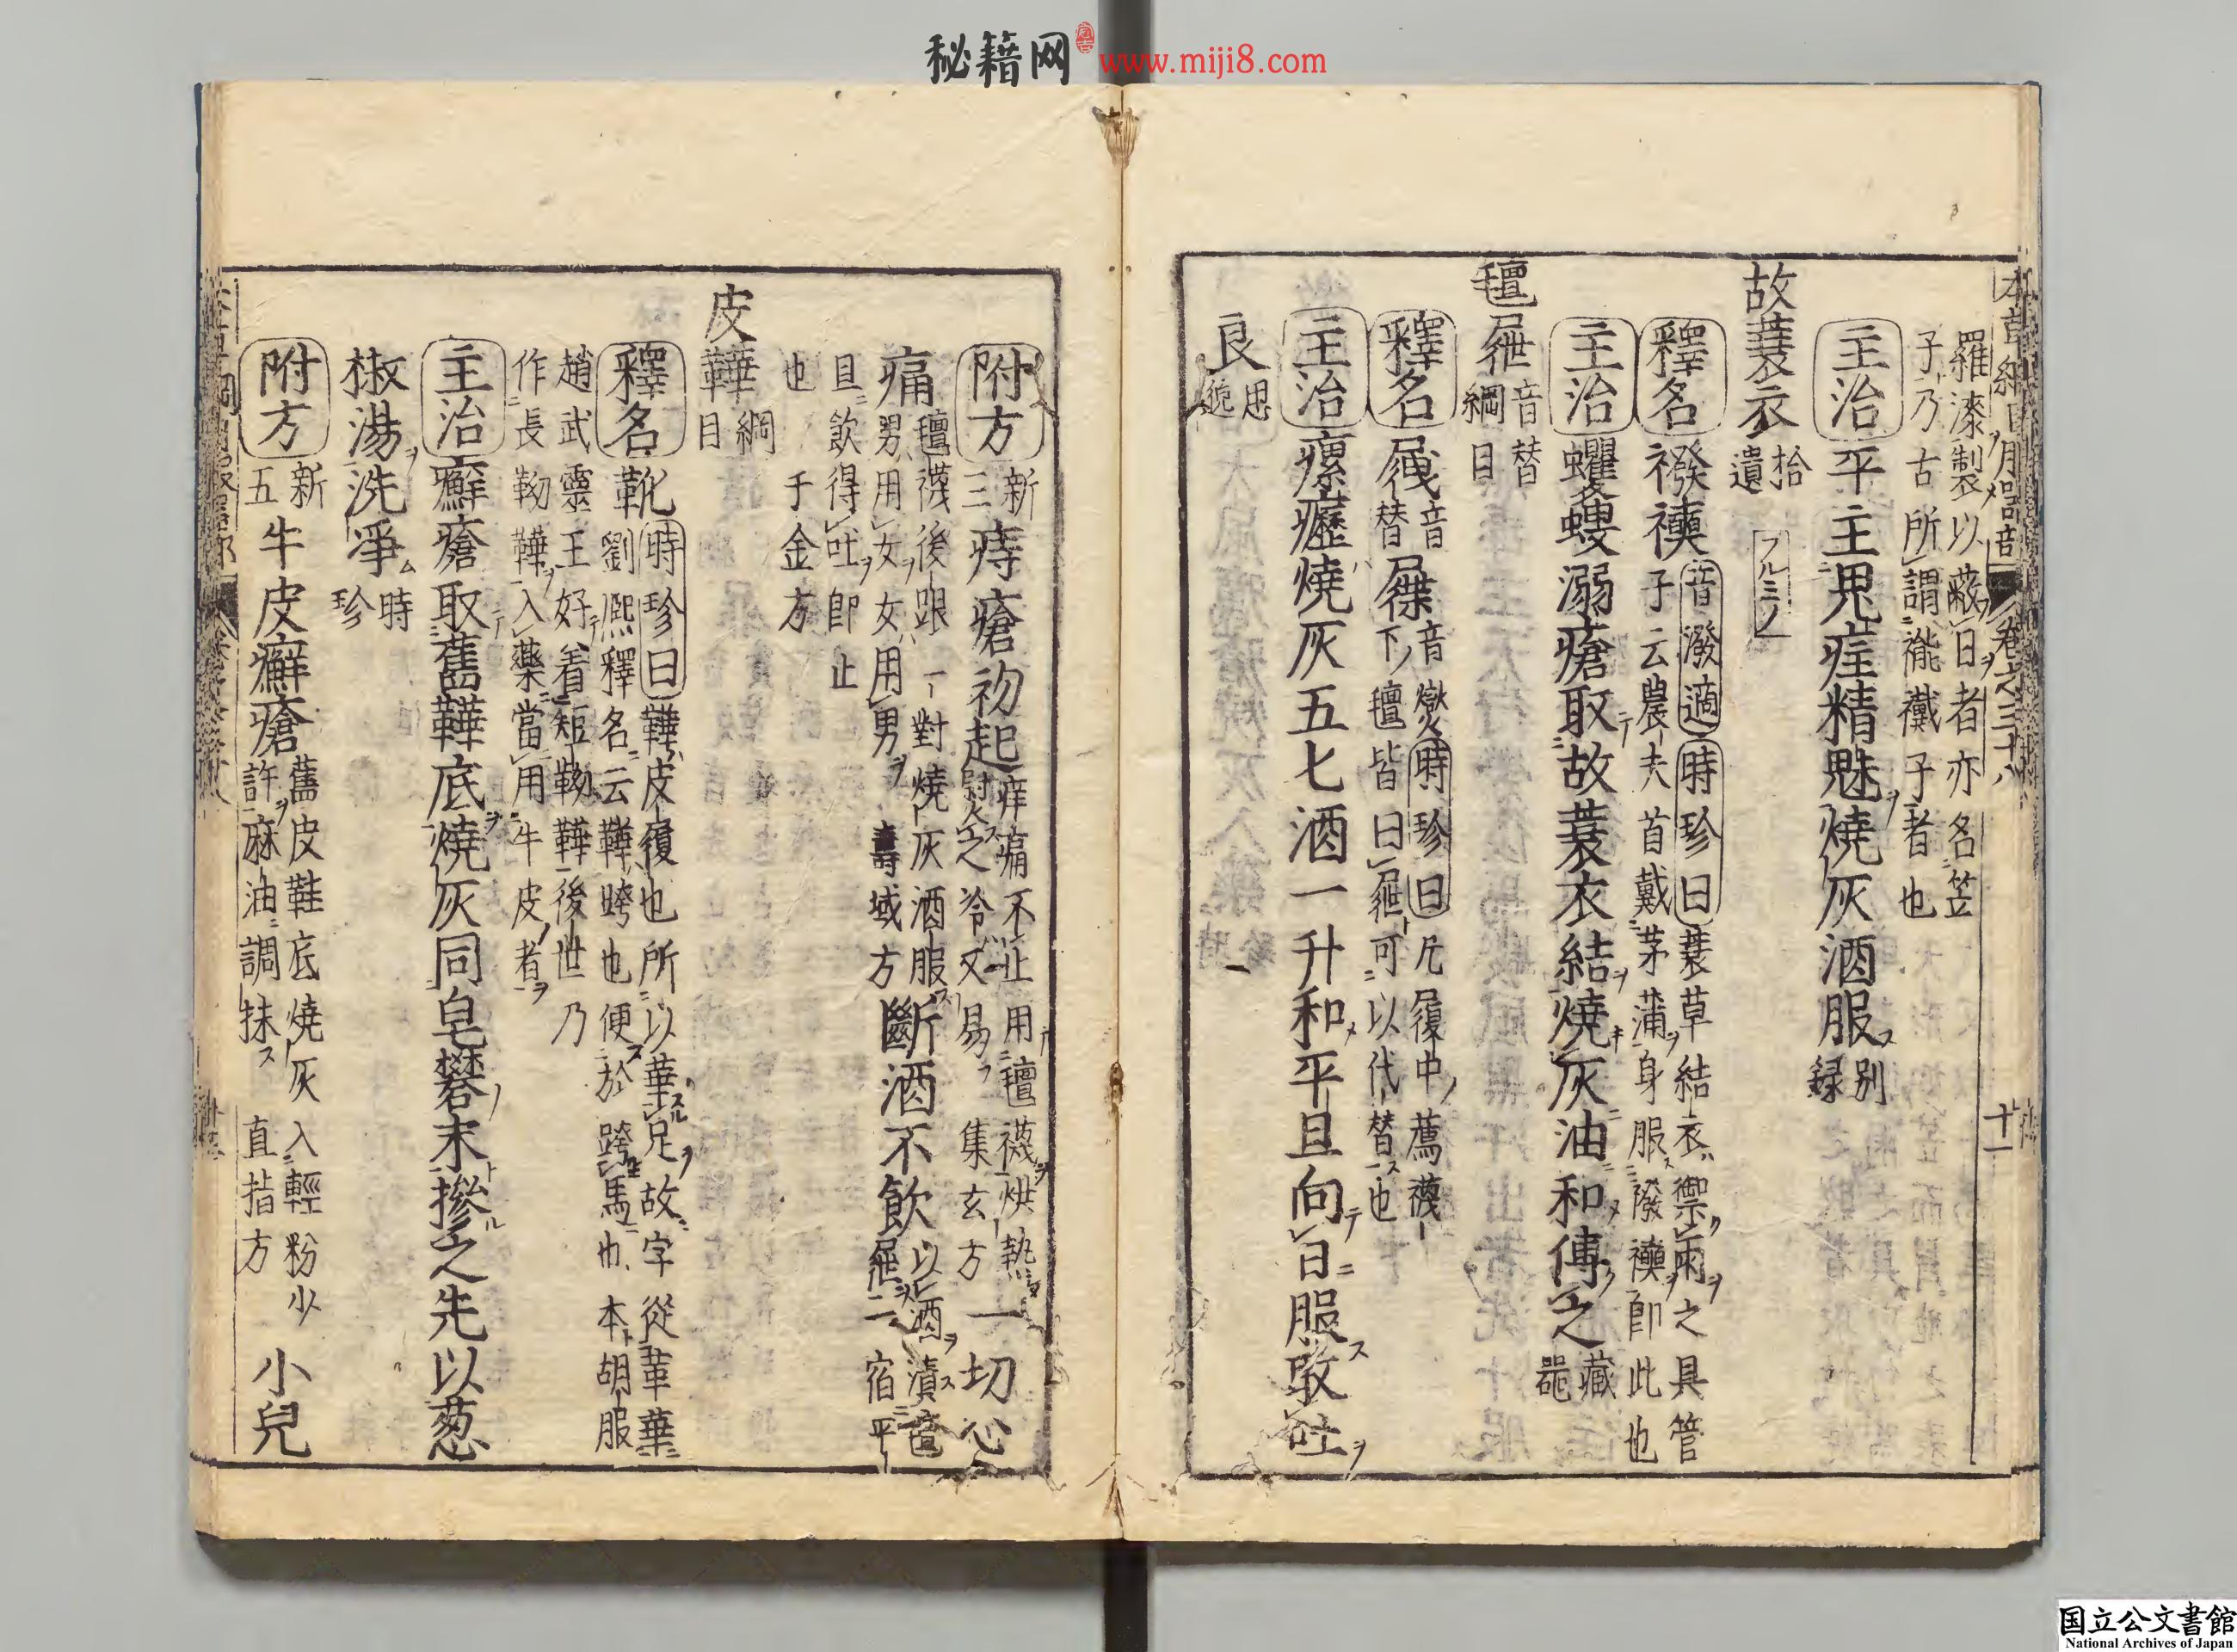 秘籍网 www.miji8.com
本草綱目服器部 卷之三十八 十一
羅漆製以蔽日者亦名笠
子乃古所謂褦襶子者也
主治 平 主鬼疰精魅燒灰酒服 別錄
故蓑衣 拾遺 フルミノ
釋名 襏襫 音潑適 時珍曰 蓑草結衣禦雨之具管
子云農夫首戴茅蒲身服襏襫即此也
主治 蠼螋溺瘡取故蓑衣結燒灰油和傅之 藏器
氊屜 音替 綱目
釋名 屧 音替 屟 音燮 時珍曰 凡履中薦襪
下氊皆曰屜可以代替也
主治 瘰癧燒灰五七酒一升和平且向日服取吐
良 思邈
附方 新三 痔瘡初起 痒痛不止用氊襪烘熱
熨之冷又易 集玄方 一切心
痛 氊襪後跟一對燒灰酒服
男用女女用男 壽域方 斷酒不飲 以酒漬氊
屜一宿平
且飲得吐即止
也 千金方
皮鞾 綱目
釋名 靴 時珍曰 鞾皮履也所以華足故字從革華
劉熈釋名云鞾跨也便於跨馬也本胡服
趙武靈王好着短靿鞾後世乃
作長靿鞾入藥當用牛皮者
主治 癬瘡取舊鞾底燒灰同皂礬末摻之先以葱
椒湯洗淨 時珍
附方 新五 牛皮癬瘡 舊皮鞋底燒灰入輕粉少
許麻油調抹 直指方 小兒
国立公文書館
National Archives of Japan